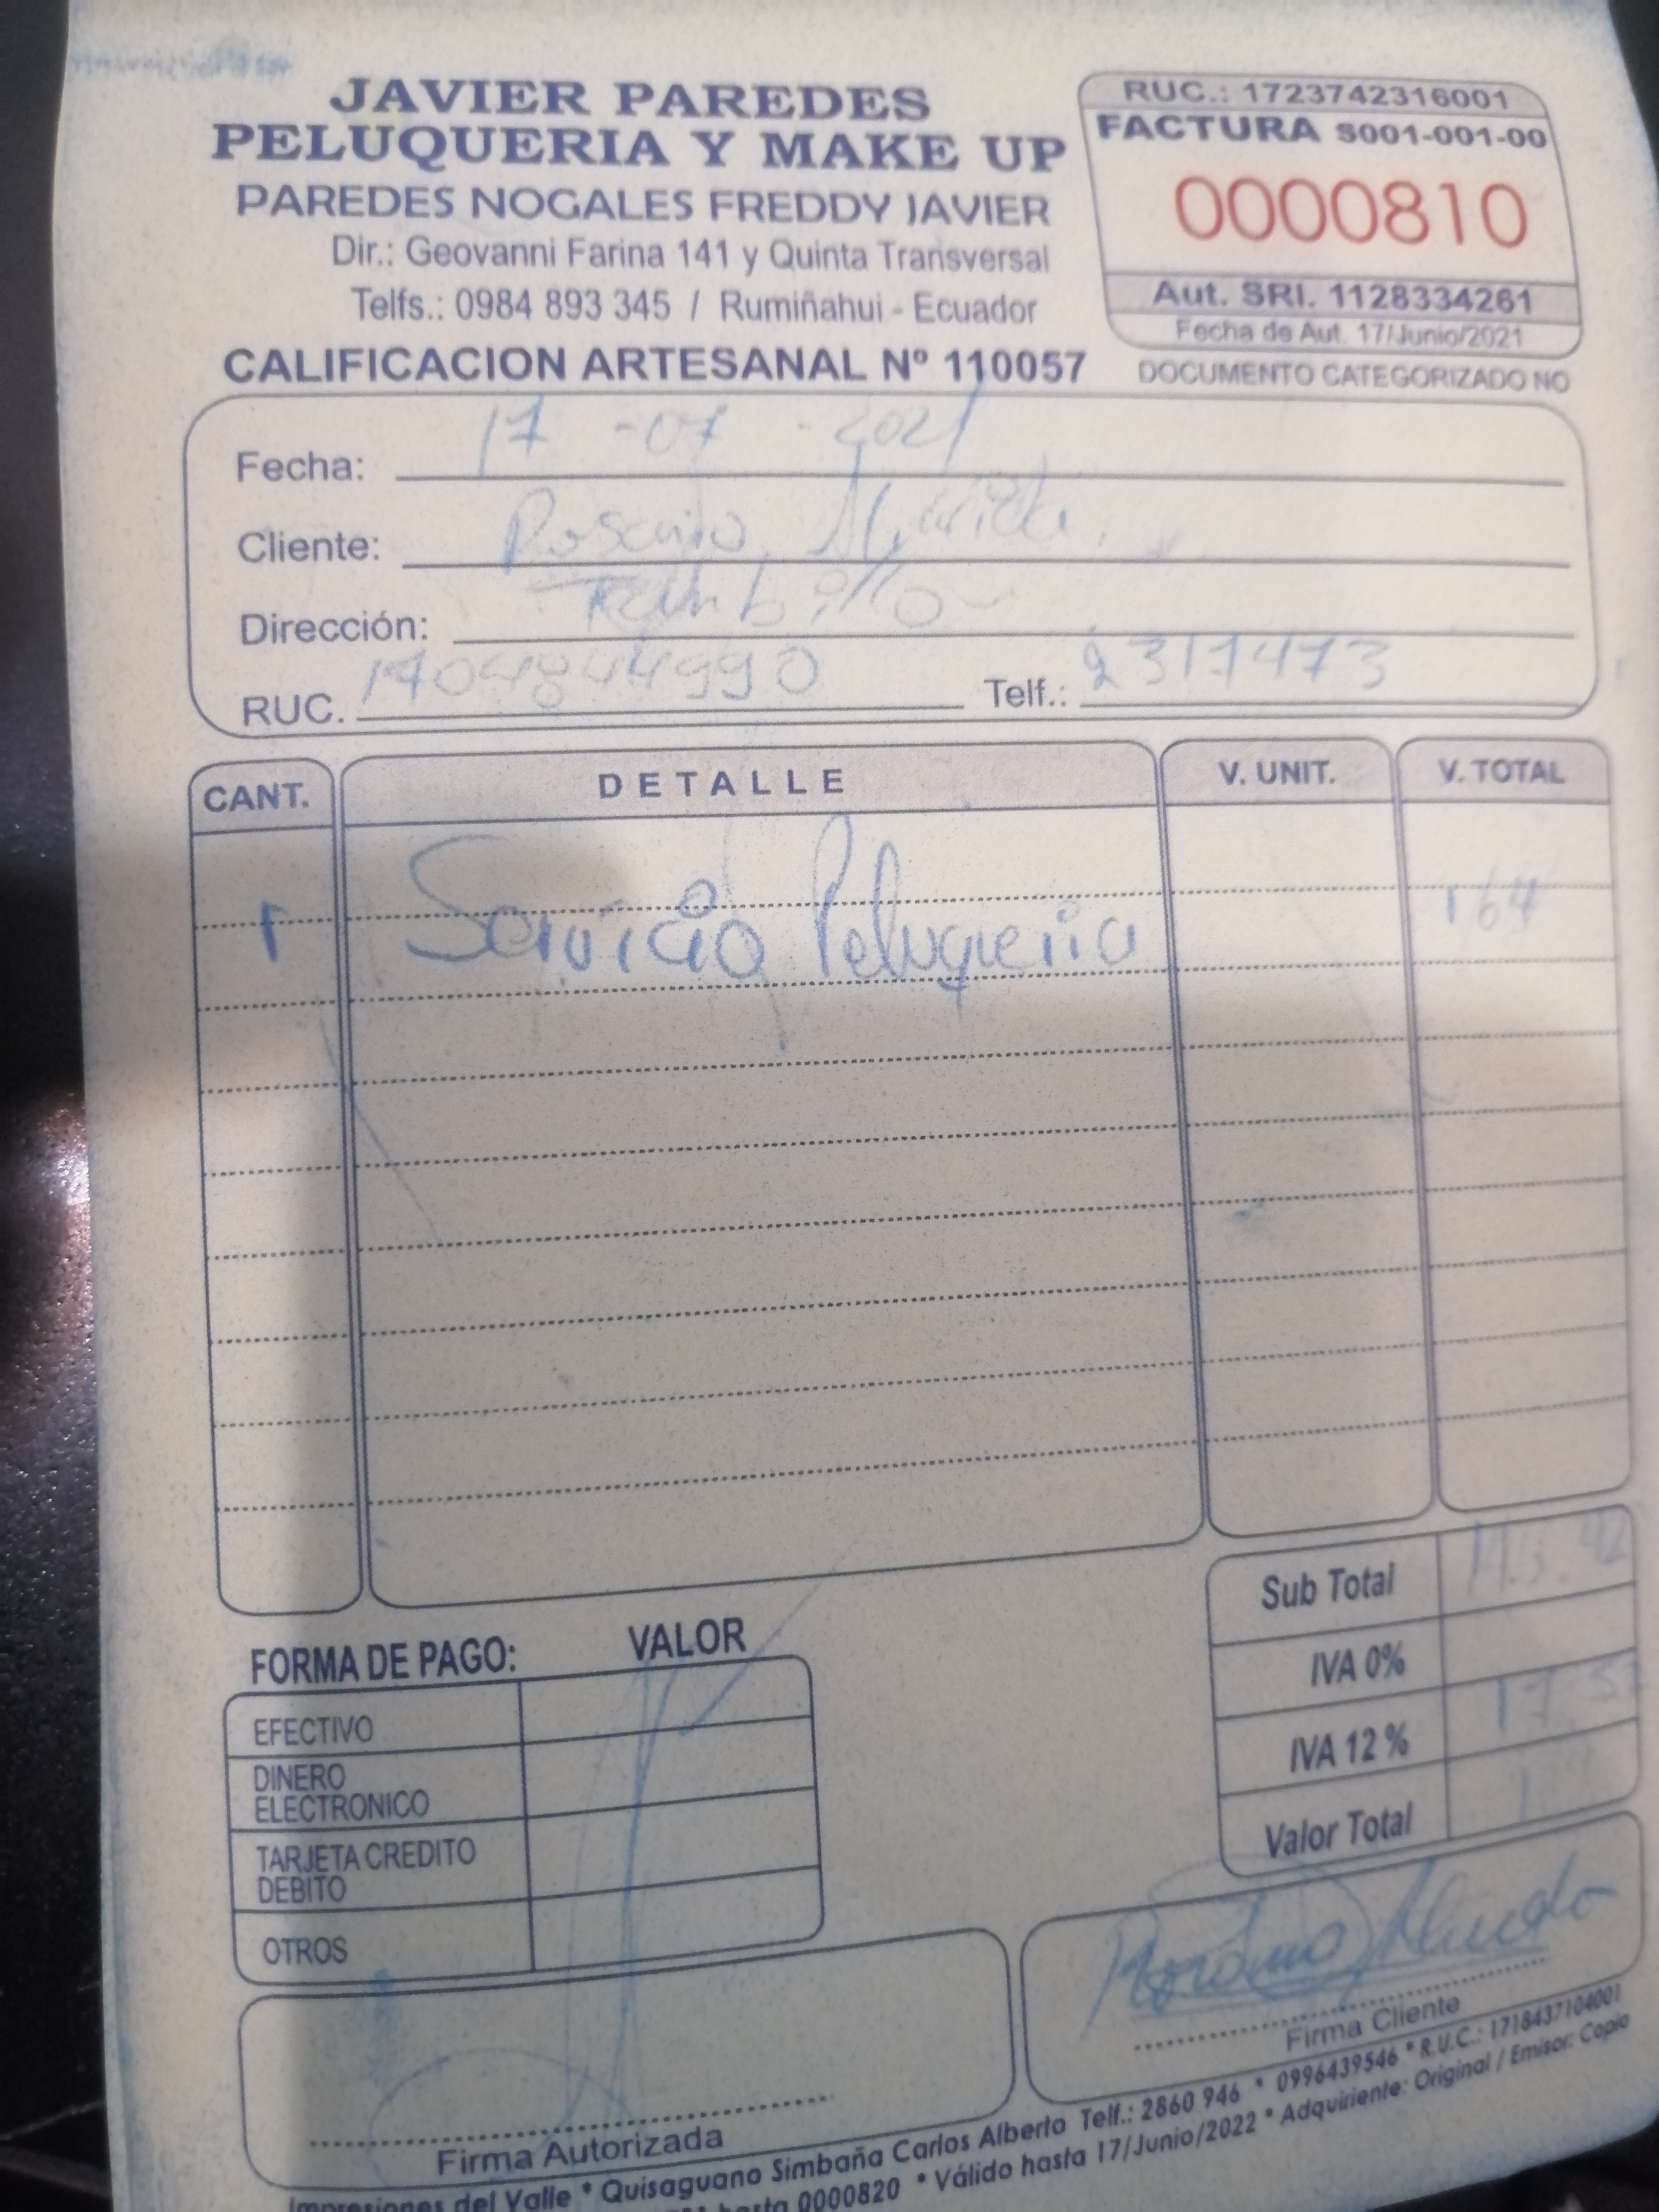 JAVIER PAREDES
PELUQUERIA Y MAKE UP
PAREDES NOGALES FREDDY JAVIER
Dir.: Geovanni Farina 141 y Quinta Transversal
Telfs.: 0984 893 345 / Rumiñahui - Ecuador
CALIFICACION ARTESANAL Nº 110057
RUC.: 1723742316001
FACTURA S001-001-00
0000810
Aut. SRI. 1128334261
Fecha de Aut. 17/Junio/2021
DOCUMENTO CATEGORIZADO NO
Fecha: 17 - 07 - 2021
Cliente: Rosario
Dirección: Tambillo
RUC. 1704844990 Telf.: 2317473
CANT. DETALLE V. UNIT. V. TOTAL
1 Servicio Peluqueria 164
Sub Total
IVA 0%
IVA 12%
Valor Total
FORMA DE PAGO: VALOR
EFECTIVO
DINERO
ELECTRONICO
TARJETA CREDITO
DEBITO
OTROS
Firma Autorizada
Firma Cliente
Impresiones del Valle * Quisaguano Simbaña Carlos Alberto Telf.: 2860 946 * 0996439546 * R.U.C.: 1718437104001
hasta 0000820 * Válido hasta 17/Junio/2022 * Adquiriente: Original / Emisor: Copia